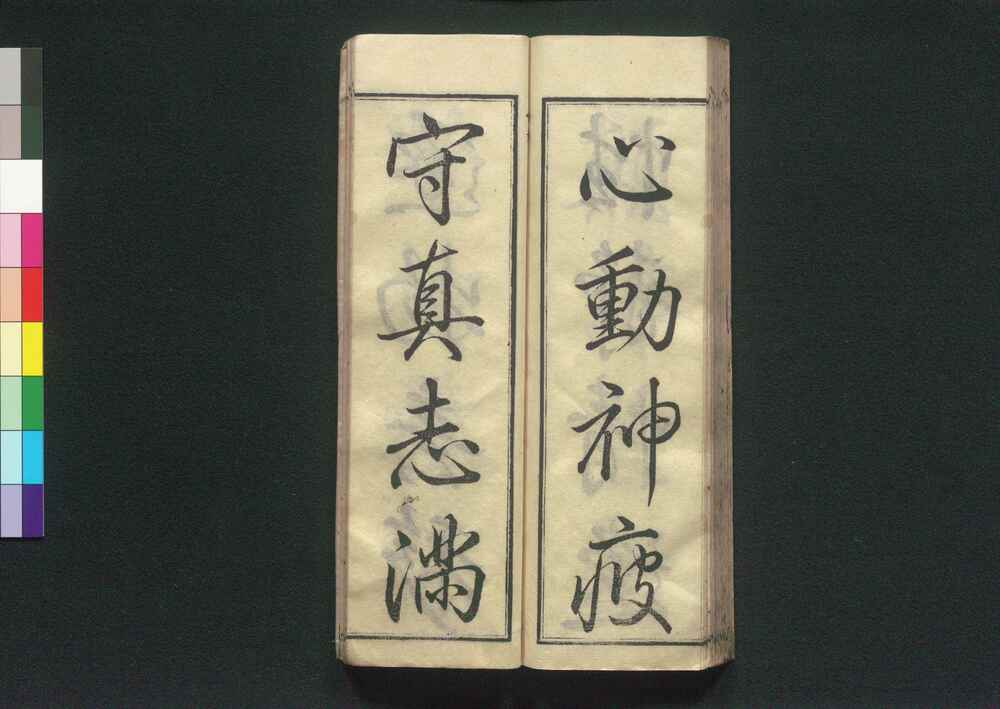 心動神疲
守真志滿